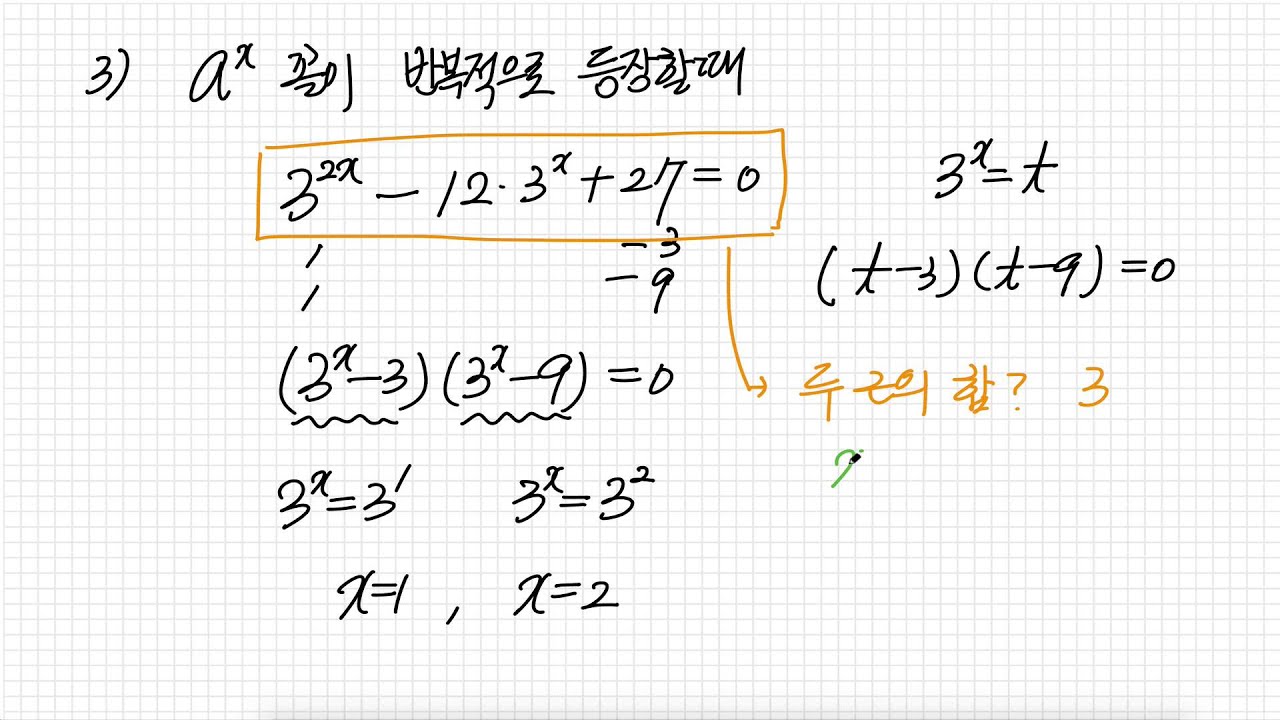 3) aˣ 꼴이 반복적으로 등장할때
3²ˣ - 12·3ˣ + 27 = 0
3ˣ = t
1 -3
1 -9
(t-3)(t-9) = 0
(3ˣ-3)(3ˣ-9) = 0
두 근의 합? 3
3ˣ = 3¹ 3ˣ = 3²
x=1 , x=2